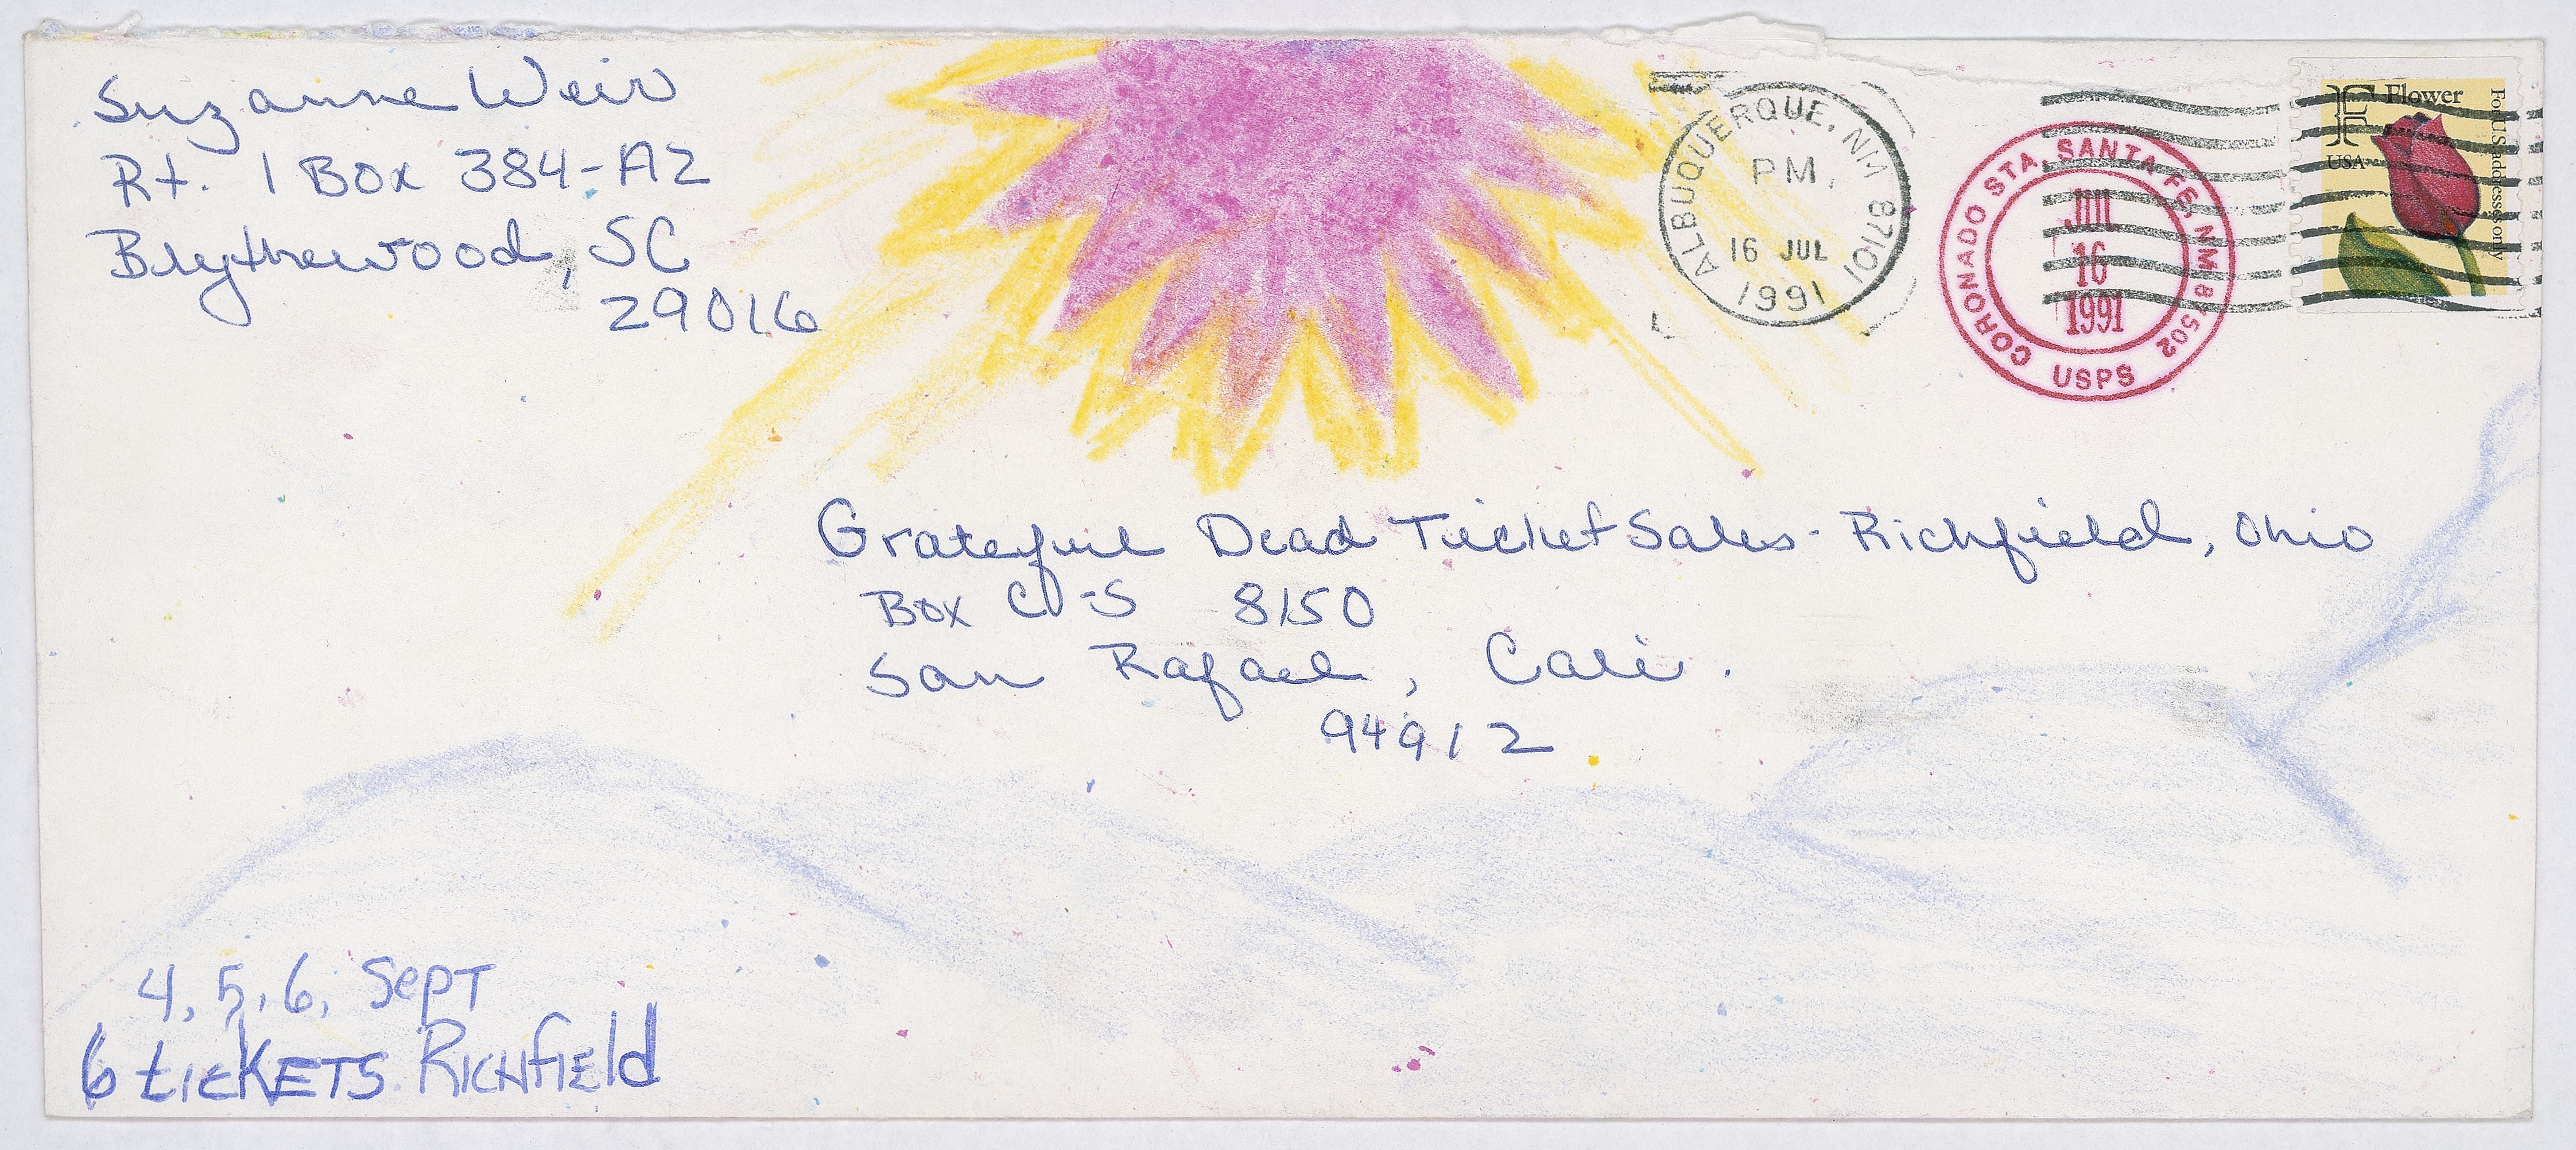 Suzanne Weir
Rt. 1 Box 384-A2
Blythewood, SC
29016
ALBUQUERQUE, NM 87101
PM
16 JUL
1991
CORONADO STA. SANTA FE, NM 87502
JUL
16
1991
USPS
F Flower
USA
For U.S. addresses only
Grateful Dead Ticket Sales - Richfield, Ohio
Box -S 8150
San Rafael, Cali.
94912
4, 5, 6, Sept
6 tickETS Richfield